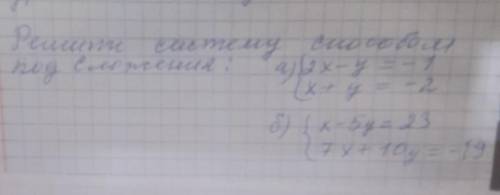 Решить систему способом
под сложения: а) {2x-y=-1
{x+y=-2
б) {x-5y=23
{7x+10y=-19